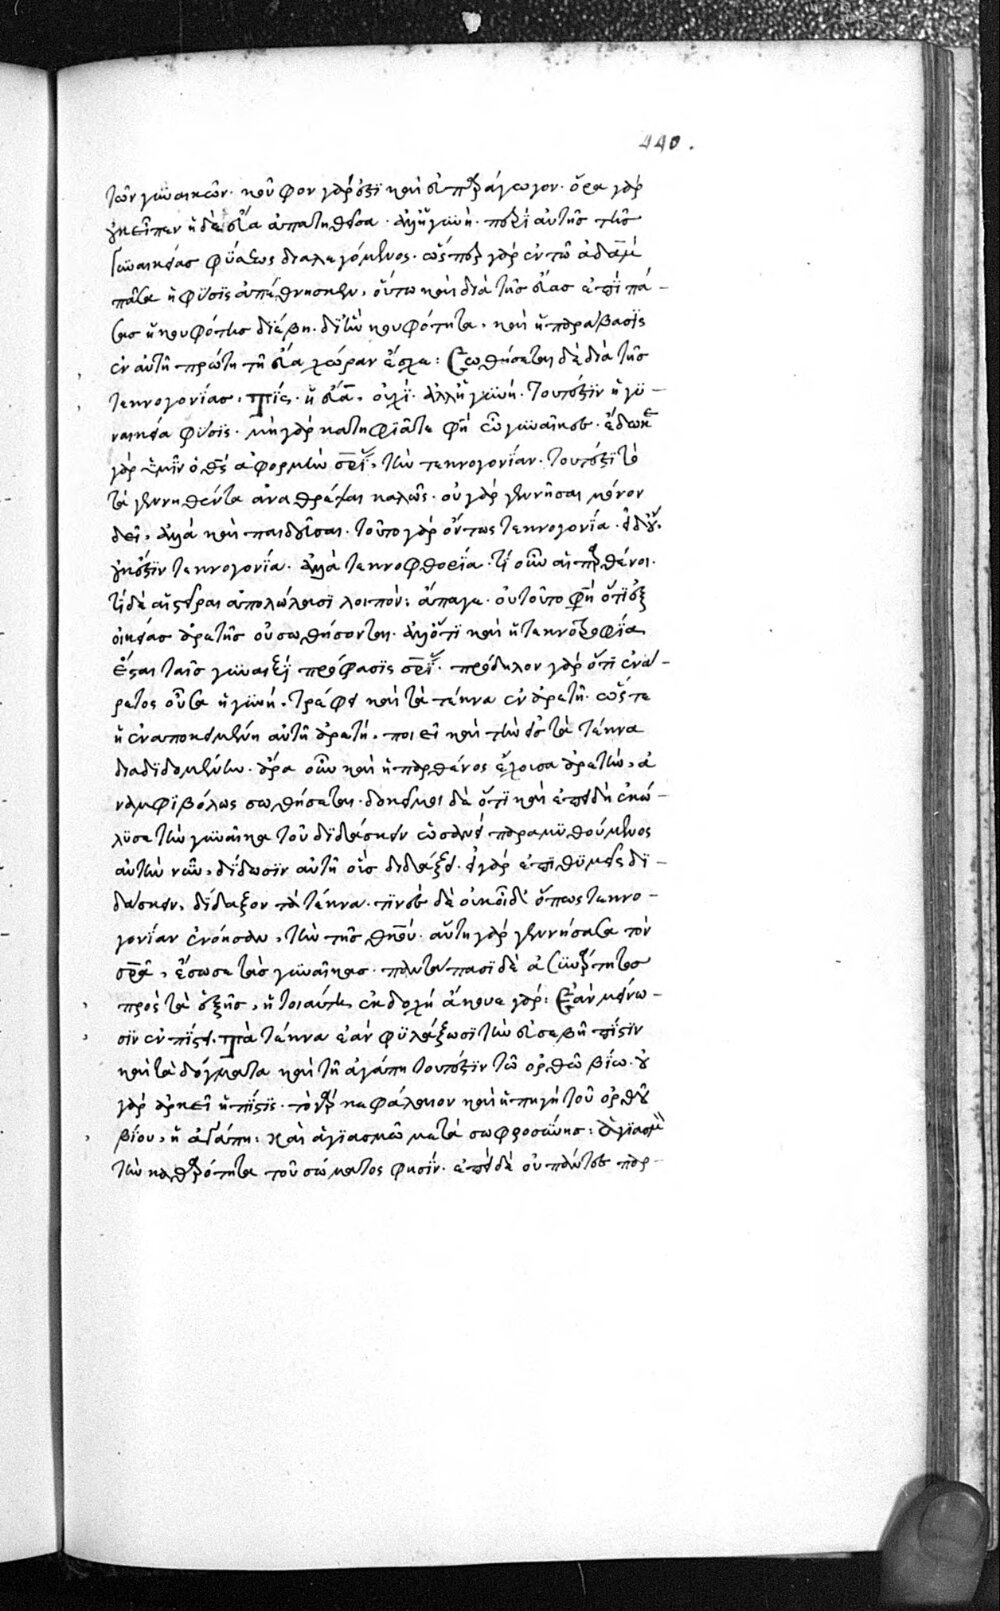 440.
τῶν γυναικῶν. κοῦφον γάρ ἐστι καὶ εὐπαράγωγον. ὅρα γὰρ
οὐκ εἶπεν ἡ δὲ εὔα ἀπατηθεῖσα. ἀλλ' ἡ γυνή. περὶ αὐτῆς τῆς
γυναικείας φύσεως διαλεγόμενος. ὥσπερ γὰρ ἐν τῶ ἀδὰμ
πᾶσα ἡ φύσις ἀπέθνησκεν, οὕτω καὶ διὰ τῆς εὔας ἐπὶ πά-
σας ἡ κουφότης διέβη. δι' ἣν κουφότητα, καὶ ἡ παράβασις
ἐν αὐτῆ πρώτη τῆ εὔα χώραν ἔσχε: Σωθήσεται δὲ διὰ τῆς
τεκνογονίας. Τίς. ἡ εὔα. οὐχί. ἀλλ' ἡ γυνή. τουτέστιν ἡ γυ-
ναικεία φύσις. μὴ γὰρ κατηφιᾶτε φη ὦ γυναῖκες. ἔδωκε
γὰρ ὑμῖν ὁ θς ἀφορμὴν σρι, τὴν τεκνογονίαν. τουτέστι τὸ
τὰ γεννηθέντα ἀναθρέψαι καλῶς. οὐ γὰρ γεννῆσαι μόνον
δεῖ, ἀλλὰ καὶ παιδεῦσαι. τοῦτο γὰρ ὄντως τεκνογονία. εἰ δ' οὔ,
οὐκ ἔστιν τεκνογονία. ἀλλὰ τεκνοφθορία. τί οὖν αἱ παρθένοι.
τί δὲ αἱ στεῖραι ἀπολώλασι λοιπόν; ἄπαγε. οὐ τοῦτο φη ὅτι ἐξ
οἰκείας ἀρετῆς οὐ σωθήσονται. ἀλλ' ὅτι καὶ ἡ τεκνοτροφία
ἔσται ταῖς γυναιξὶ πρόφασις σρι. πρόδηλον γὰρ ὅτι ἐνά-
ρετος οὖσα ἡ γυνή, τρέφει καὶ τὰ τέκνα ἐν ἀρετῆ. ὥστε
ἡ ἐναποκειμένη αὐτῆ ἀρετή, ποιεῖ καὶ τὴν εἰς τὰ τέκνα
διαδιδομένην. ἄρα οὖν καὶ ἡ παρθένος ἔχουσα ἀρετὴν, ἀ
ναμφιβόλως σωθήσεται. δοκεῖ μοι δὲ ὅτι καὶ ἐπειδὴ ἐκώ-
λυσε τὴν γυναῖκα τοῦ διδάσκειν ὡσανεὶ παραμυθούμενος
αὐτὴν νῦν, δίδωσιν αὐτῆ οἷς διδάξει. εἰ γὰρ ἐπιθυμεῖς δι-
δάσκειν, δίδαξον τὰ τέκνα. τινὲς δὲ οὐκ οἶδ' ὅπως τεκνο-
γονίαν ἐνόησαν, τὴν τῆς θκου. αὕτη γὰρ γεννήσασα τὸν
σρα, ἔσωσε τὰς γυναῖκας. παντάπασι δὲ ἀσυνάρτητος
πρὸς τὰ ἑξῆς, ἡ τοιαύτη ἐκδοχὴ ἄκουε γάρ: Ἐὰν μείνω-
σιν ἐν πίστει. Τὰ τέκνα ἐὰν φυλάξωσι τὴν εὐσεβῆ πίστιν
καὶ τὰ δόγματα καὶ τῆ ἀγάπη τουτέστιν τῶ ὀρθῶ βίω. οὐ
γὰρ ἀρκεῖ ἡ πίστις. τὸ γὰρ κεφάλαιον καὶ ἡ πηγὴ τοῦ ὀρθοῦ
βίου, ἡ ἀγάπη: Καὶ ἁγιασμῶ μετὰ σωφροσύνης: Ἁγιασμὸν
τὴν καθαρότητα τοῦ σώματος φησίν. ἐπεὶ δὲ οὐ πάντες παρ-